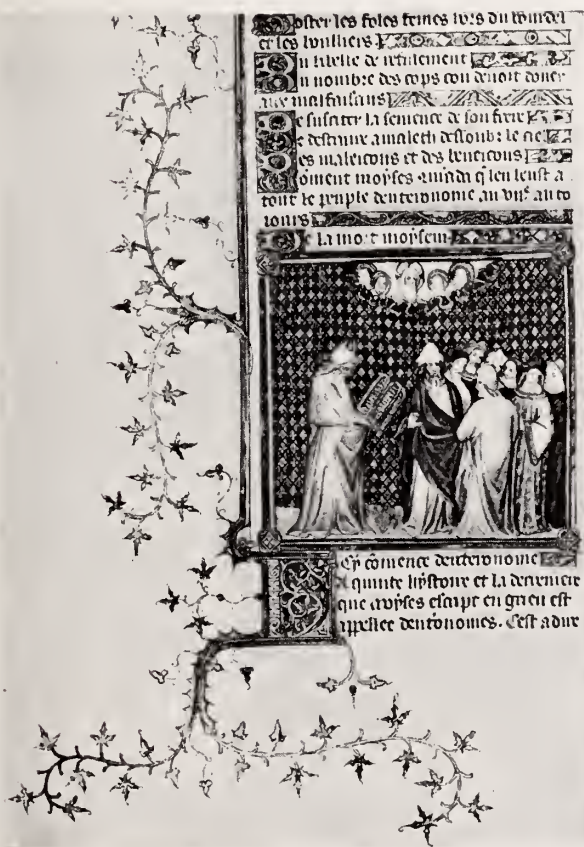 oster les foles femes hors du bourdel
et les houlliers
u libelle de refusement
u nombre des cops con devoit doner
aux malfaisans
e susciter la semence de son frere
e destruire amalech dessoubz le ciel
es maleicons et des beneicons
oment moyses manda q̃ len leust a
tout le peuple deuteronome au viie an to
iours
e la mort moysem
Cy cõmence deuteronome
quinte hystoire et la derreniere
que moyses escript en grieu est
appellee deutronomes. Cest a dire